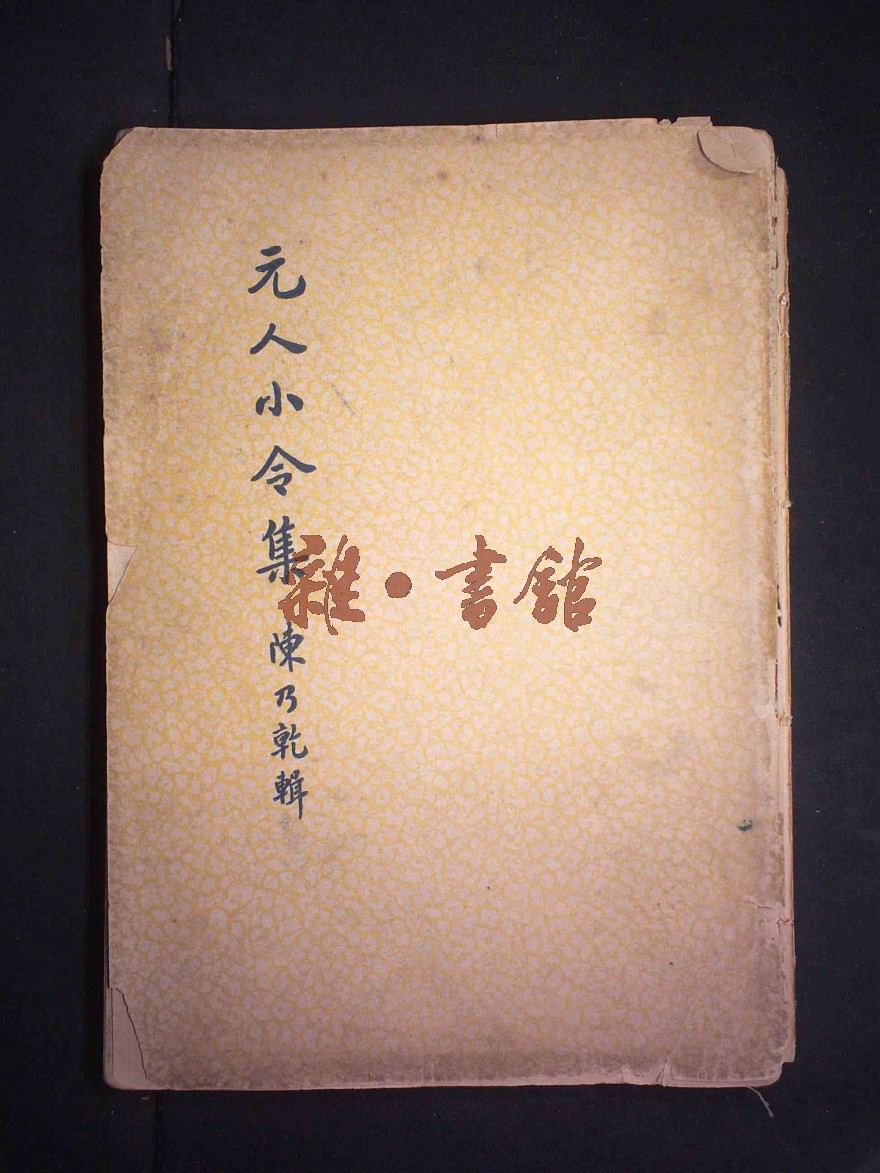 元人小令集 陳乃乾輯
雜·書館